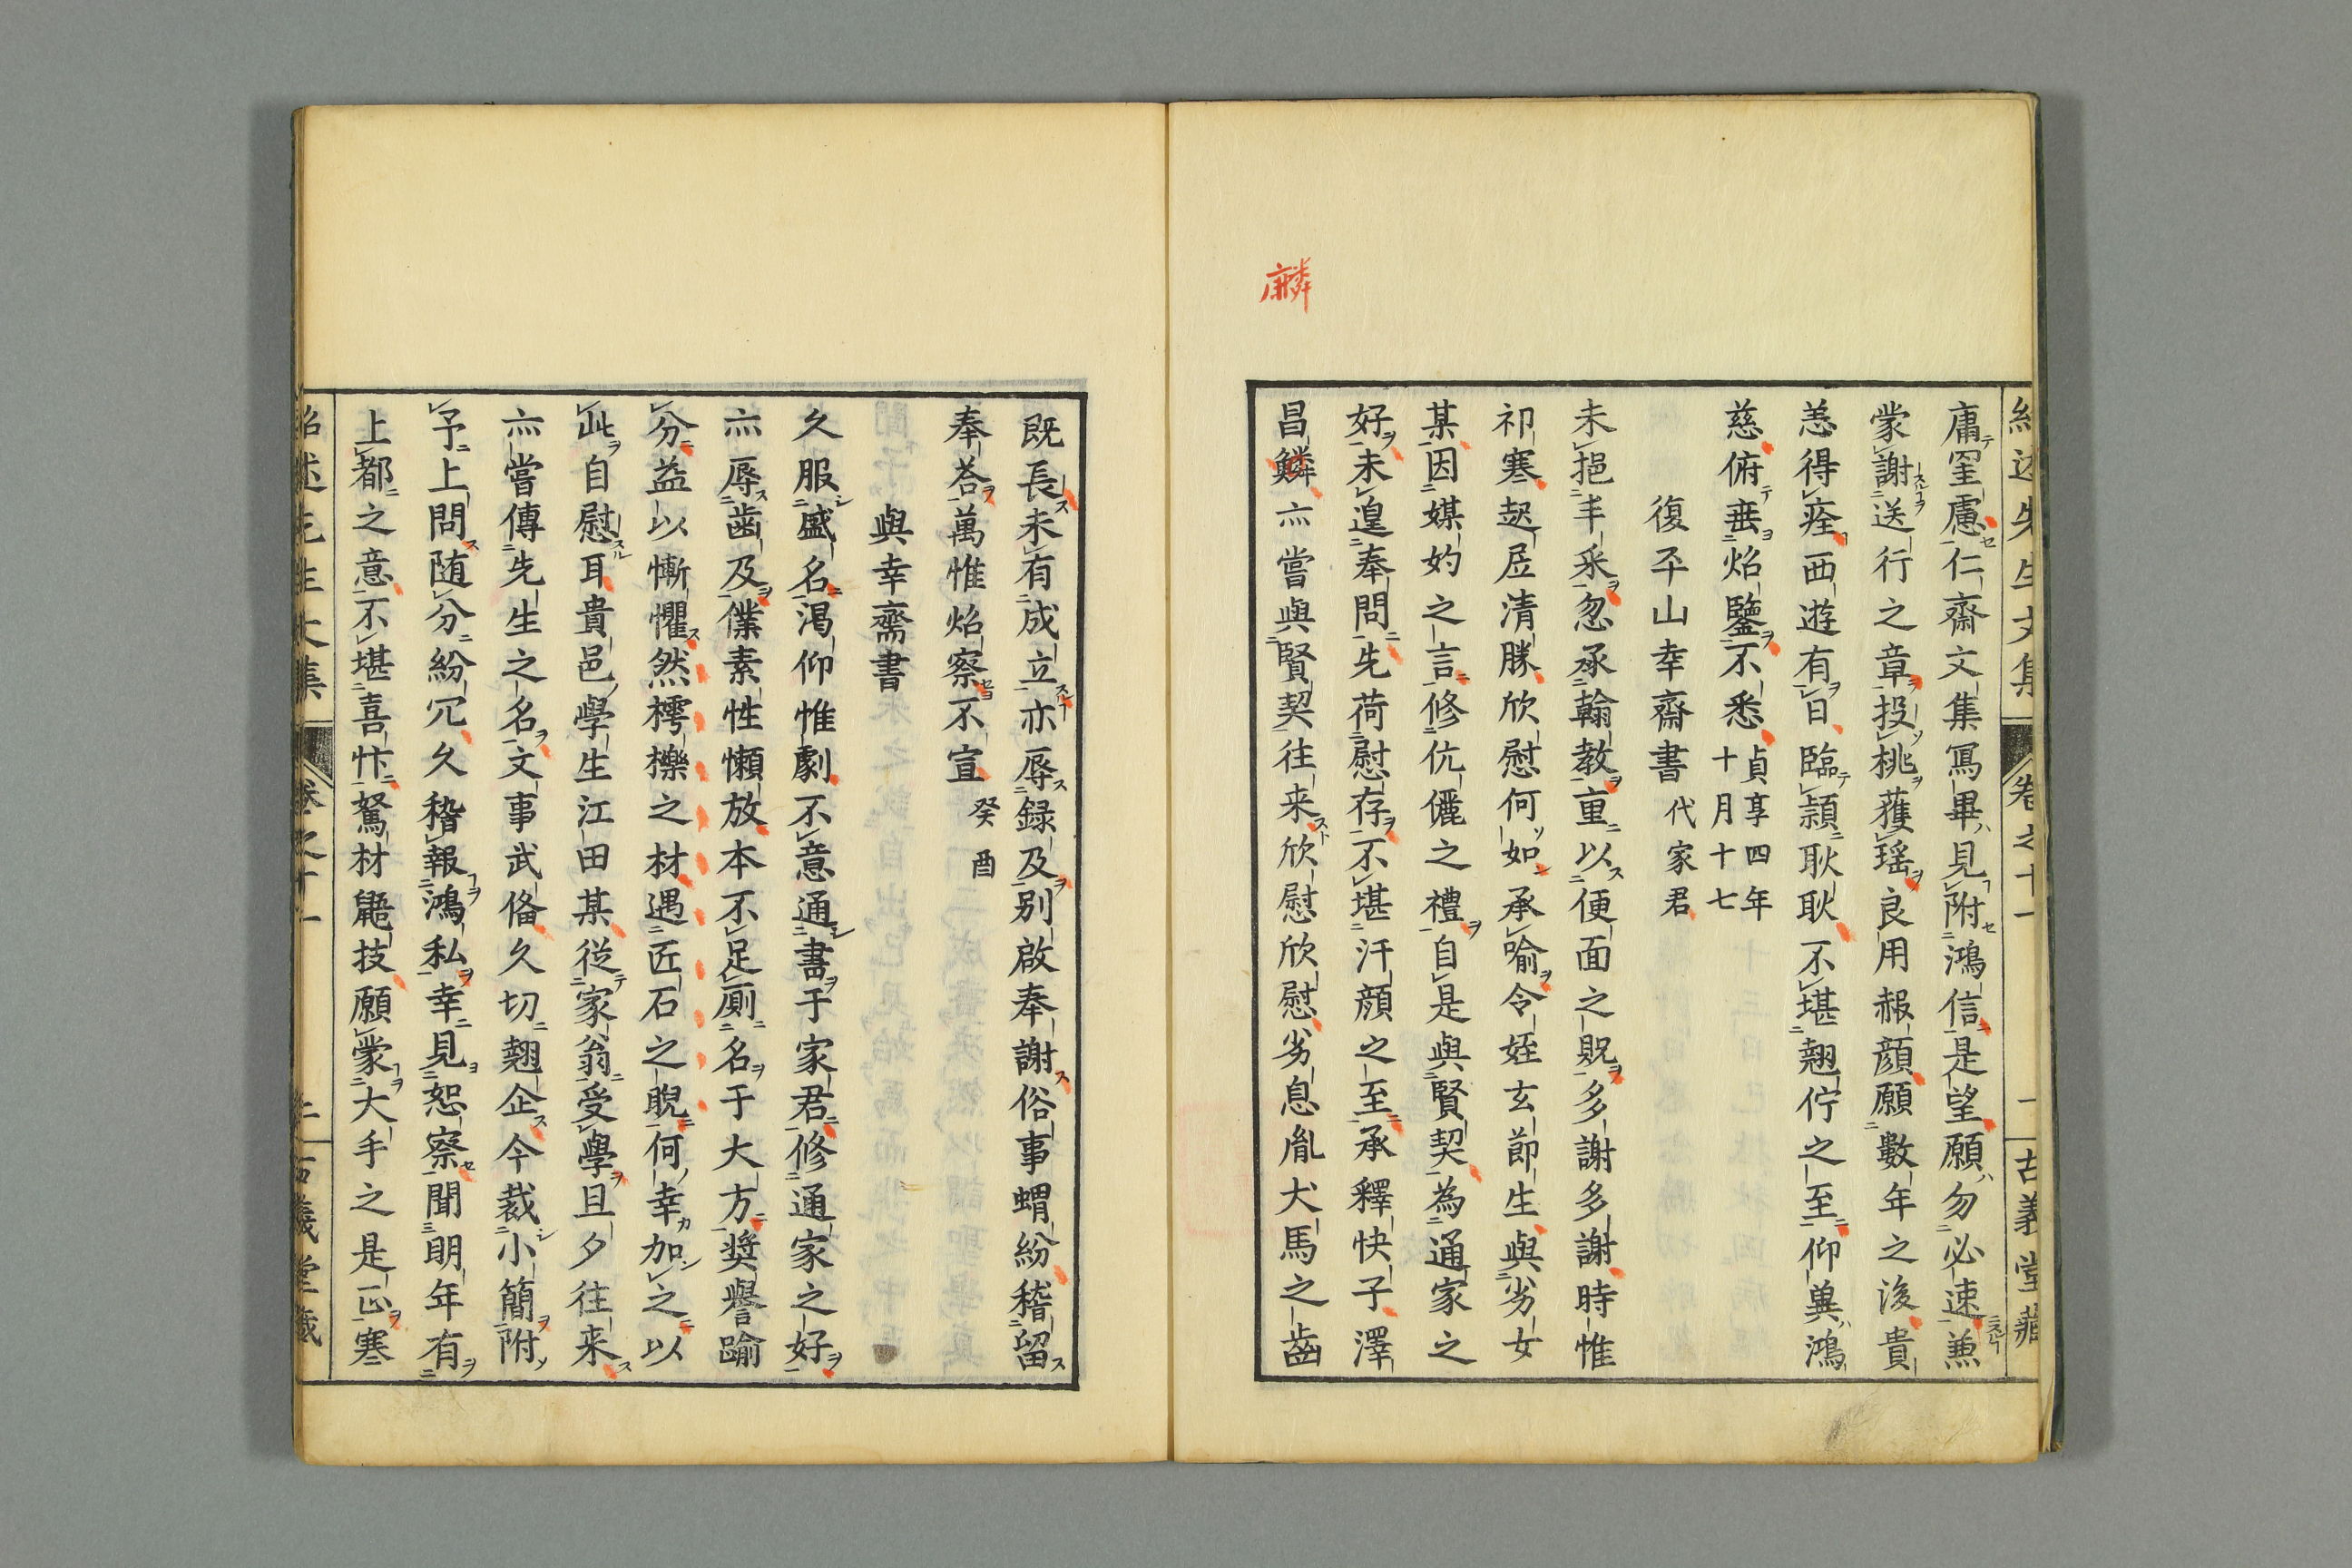 紹述先生文集 卷之十一 二 古義堂藏
庸罣慮仁齋文集寫畢見附鴻信是望願勿必速兼
蒙謝送行之章投桃獲瑶良用赧顔願數年之後貴
恙得痊西遊有日臨頴耿耿不堪翹佇之至仰兾鴻
慈俯垂炤鑒不悉貞享四年十月十七
復平山幸齋書代家君
未挹丰采忽承翰教重以便面之貺多謝多謝時惟
祁寒起居清勝欣慰何如承喻令姪玄節生與劣女
某因媒妁之言修伉儷之禮自是與賢契為通家之
好未遑奉問先荷慰存不堪汗顔之至承釋快子澤
昌鱗亦嘗與賢契往来欣慰欣慰劣息胤犬馬之齒
麟
既長未有成立亦辱録及別啟奉謝俗事蝟紛稽留
奉荅萬惟炤察不宣癸酉
與幸齋書
久服盛名渇仰惟劇不意通書于家君修通家之好
亦辱齒及僕素性懶放本不足厠名于大方奬譽踰
分益以慚懼然樗櫟之材遇匠石之睨何幸加之以
此自慰耳貴邑學生江田某從家翁受學旦夕往来
亦嘗傳先生之名文事武俻久切翹企今裁小簡附
予上問随分紛冗久稽報鴻私幸見恕察聞明年有
上都之意不堪喜忭駑材鼫技願蒙大手之是正寒
紹述先生文集 卷之十一 古義堂藏